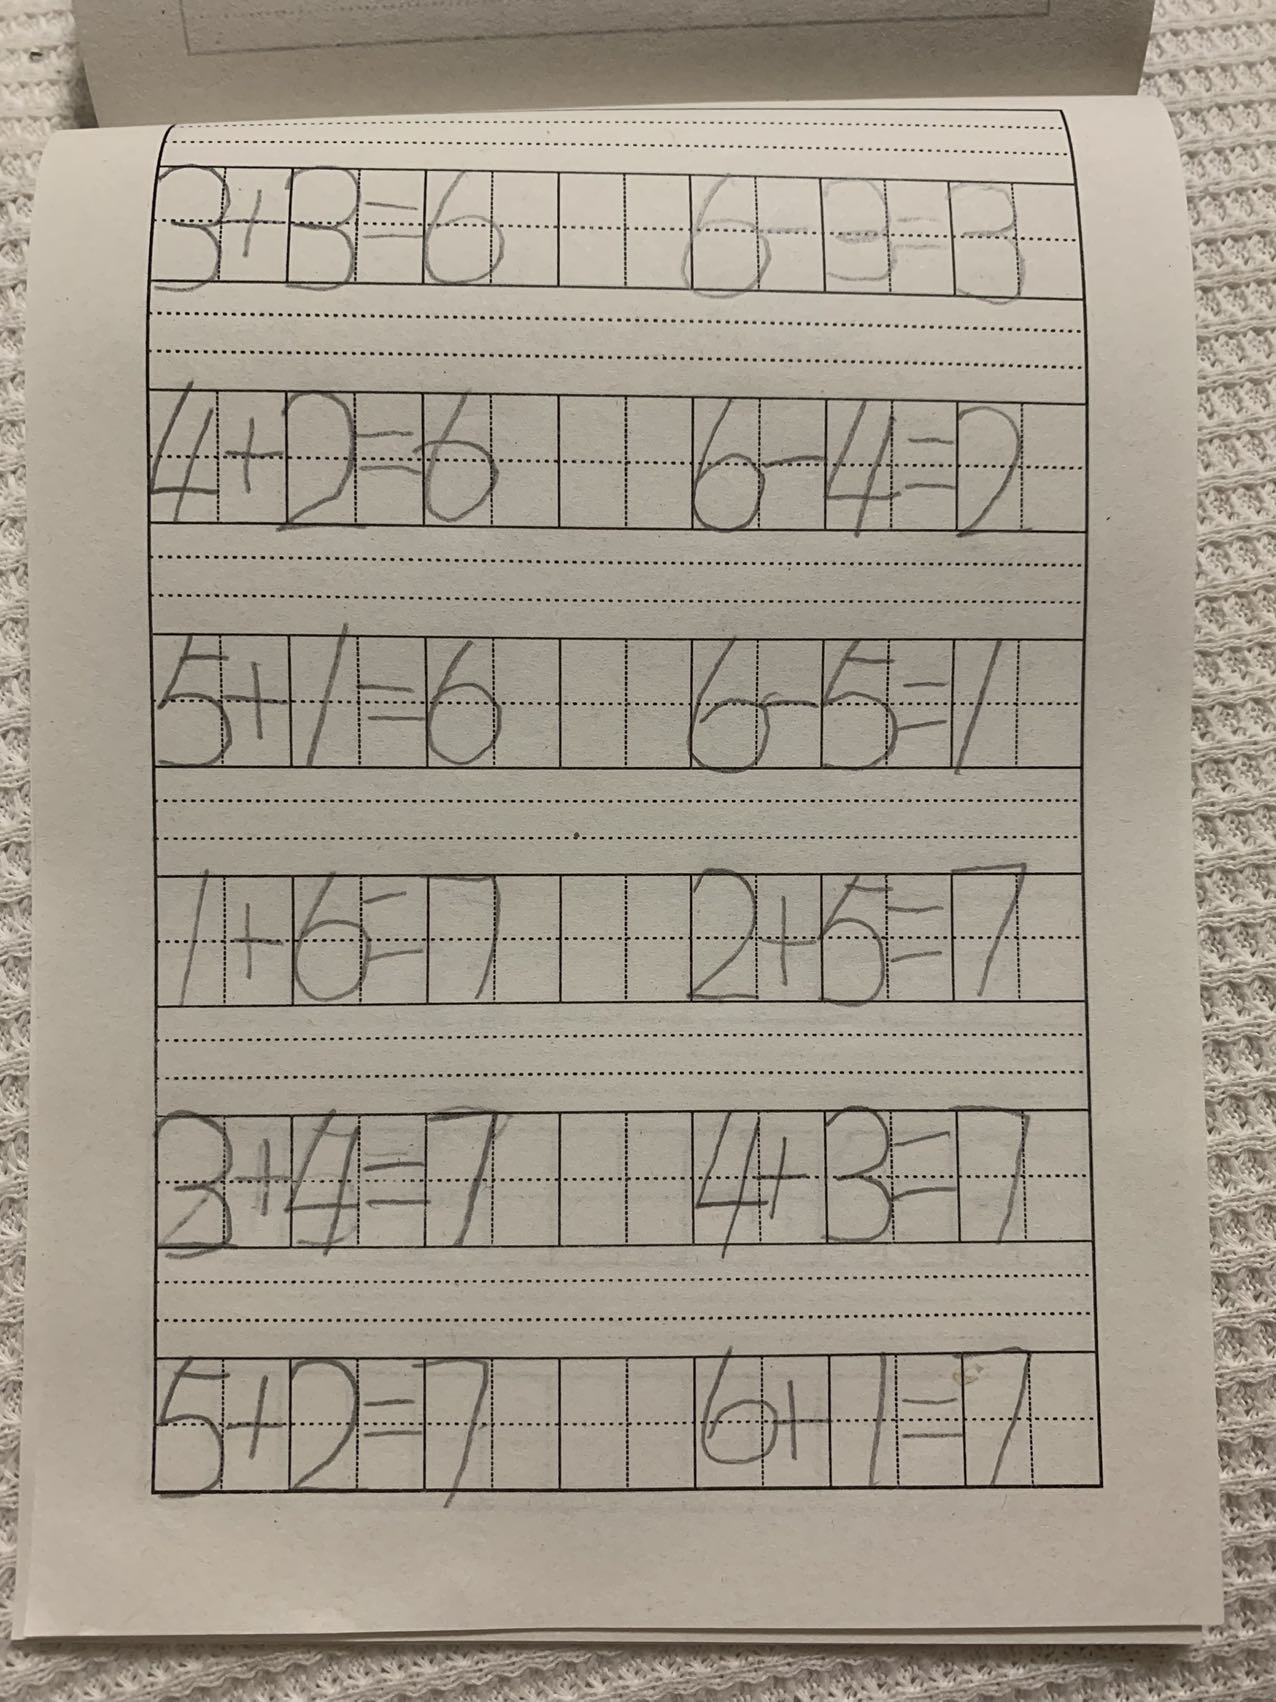 3+3=6 6-3=3
4+2=6 6-4=2
5+1=6 6-5=1
1+6=7 2+5=7
3+4=7 4+3=7
5+2=7 6+1=7